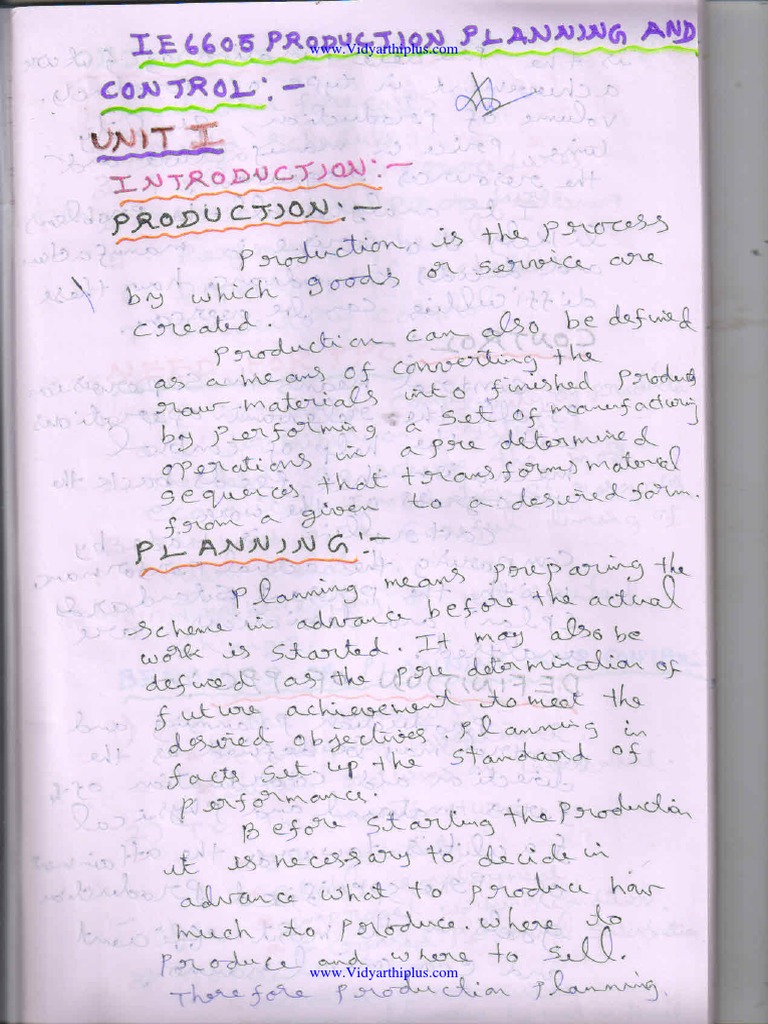 IE6605 PRODUCTION PLANNING AND
www.Vidyarthiplus.com
CONTROL:-
UNIT I
INTRODUCTION:-
PRODUCTION:-
Production is the process
by which goods or service are
created.
Production can also be defined
as a means of converting the
raw materials into finished products
by performing a set of manufacturing
operations in a pre determined
sequences that transforms material
from a given to a desired form.
PLANNING:-
Planning means preparing the
scheme in advance before the actual
work is started. It may also be
defined as the pre determination of
future achievement to meet the
desired objectives planning in
facts set up the standard of
performance.
Before starting the production
it is necessary to decide in
advance what to produce how
much to produce. where to
produce and where to sell.
www.Vidyarthiplus.com
Therefore production planning.